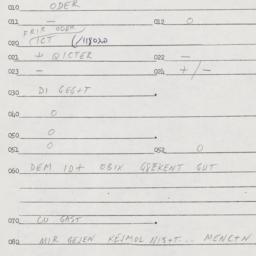 010 ODER
011 — 012 O
FRIR ODER
020 (ICT (/118020
021 + QICTER 022 —
023 — 024 +/-
030 DI GEST
040 O
050 O
051 O 052 O
060 DEM IDT OBIX GUEKENT GUT
070 CU GAST
080 MIR GEJEN KEJMOL NIST... MENCTN